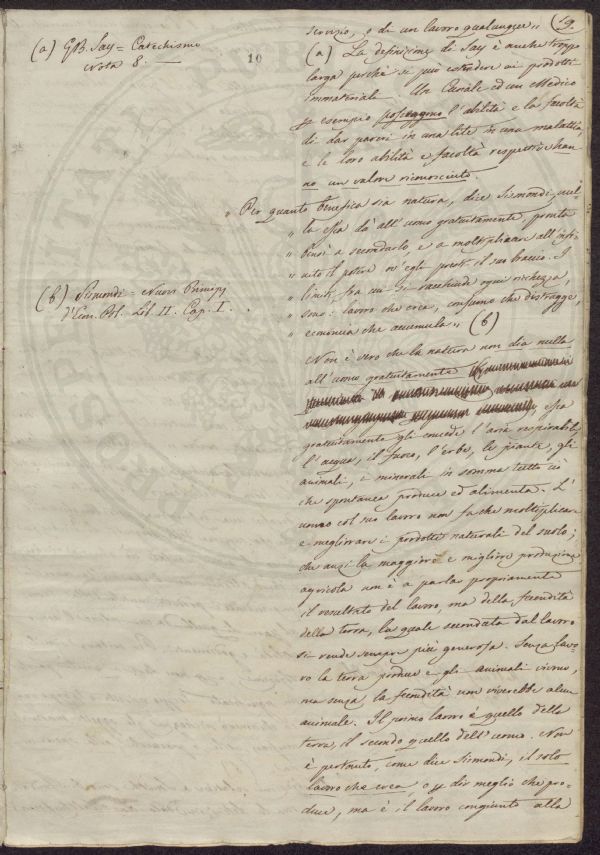 19.
10
(a) GB. Say = Catechismo
Nota 8. —
servizio, o di un lavoro qualunque „
(a) La definizione di Say è anche troppo
larga perché si può estendere ai prodotti
immateriali. Un Causale ed un Medico
per esempio posseggono l'abilità e la facoltà
di dar pareri in una lite in una malattia,
e le loro abilità e facoltà rispettive han-
no un valore riconosciuto.
„ Per quanto benefica sia natura, dice Sismondi, nul-
„ la essa dà all'uomo gratuitamente, pronta
„ bensì a secondarlo, e a moltiplicare all'infi-
„ nito il potere ov'egli presti il suo braccio. I
„ limiti fra cui si racchiude ogni ricchezza,
„ sono: lavoro che crea, consumo che distrugge,
„ economia che accumula „ (b)
(b) Sismondi = Nuovi Principj
d'Econ. Pol. Lib. II. Cap. I.
Non è vero che la natura non dia nulla
all'uomo gratuitamente
essa
gratuitamente gli concede l'aria respirabile
l'acqua, il fuoco, l'erbe, le piante, gli
animali, i minerali in somma tutto ciò
che spontanea produce ed alimenta. L'
uomo col suo lavoro non fa che moltiplicare
e migliorare i prodotti naturali del suolo;
che anzi la maggiore e migliore produzione
agricola non è a parlar propriamente
il resultato del lavoro, ma della fecondità
della terra, la quale secondata dal lavoro
si rende sempre più generosa. Senza lavo-
ro la terra produce e gli animali vivono,
ma senza la fecondità non viverebbe alcun
animale. Il primo lavoro è quello della
terra, il secondo quello dell'uomo. Non
è pertanto, come dice Sismondi, il solo
lavoro che crea, o per dir meglio che pro-
duce, ma è il lavoro congiunto alla